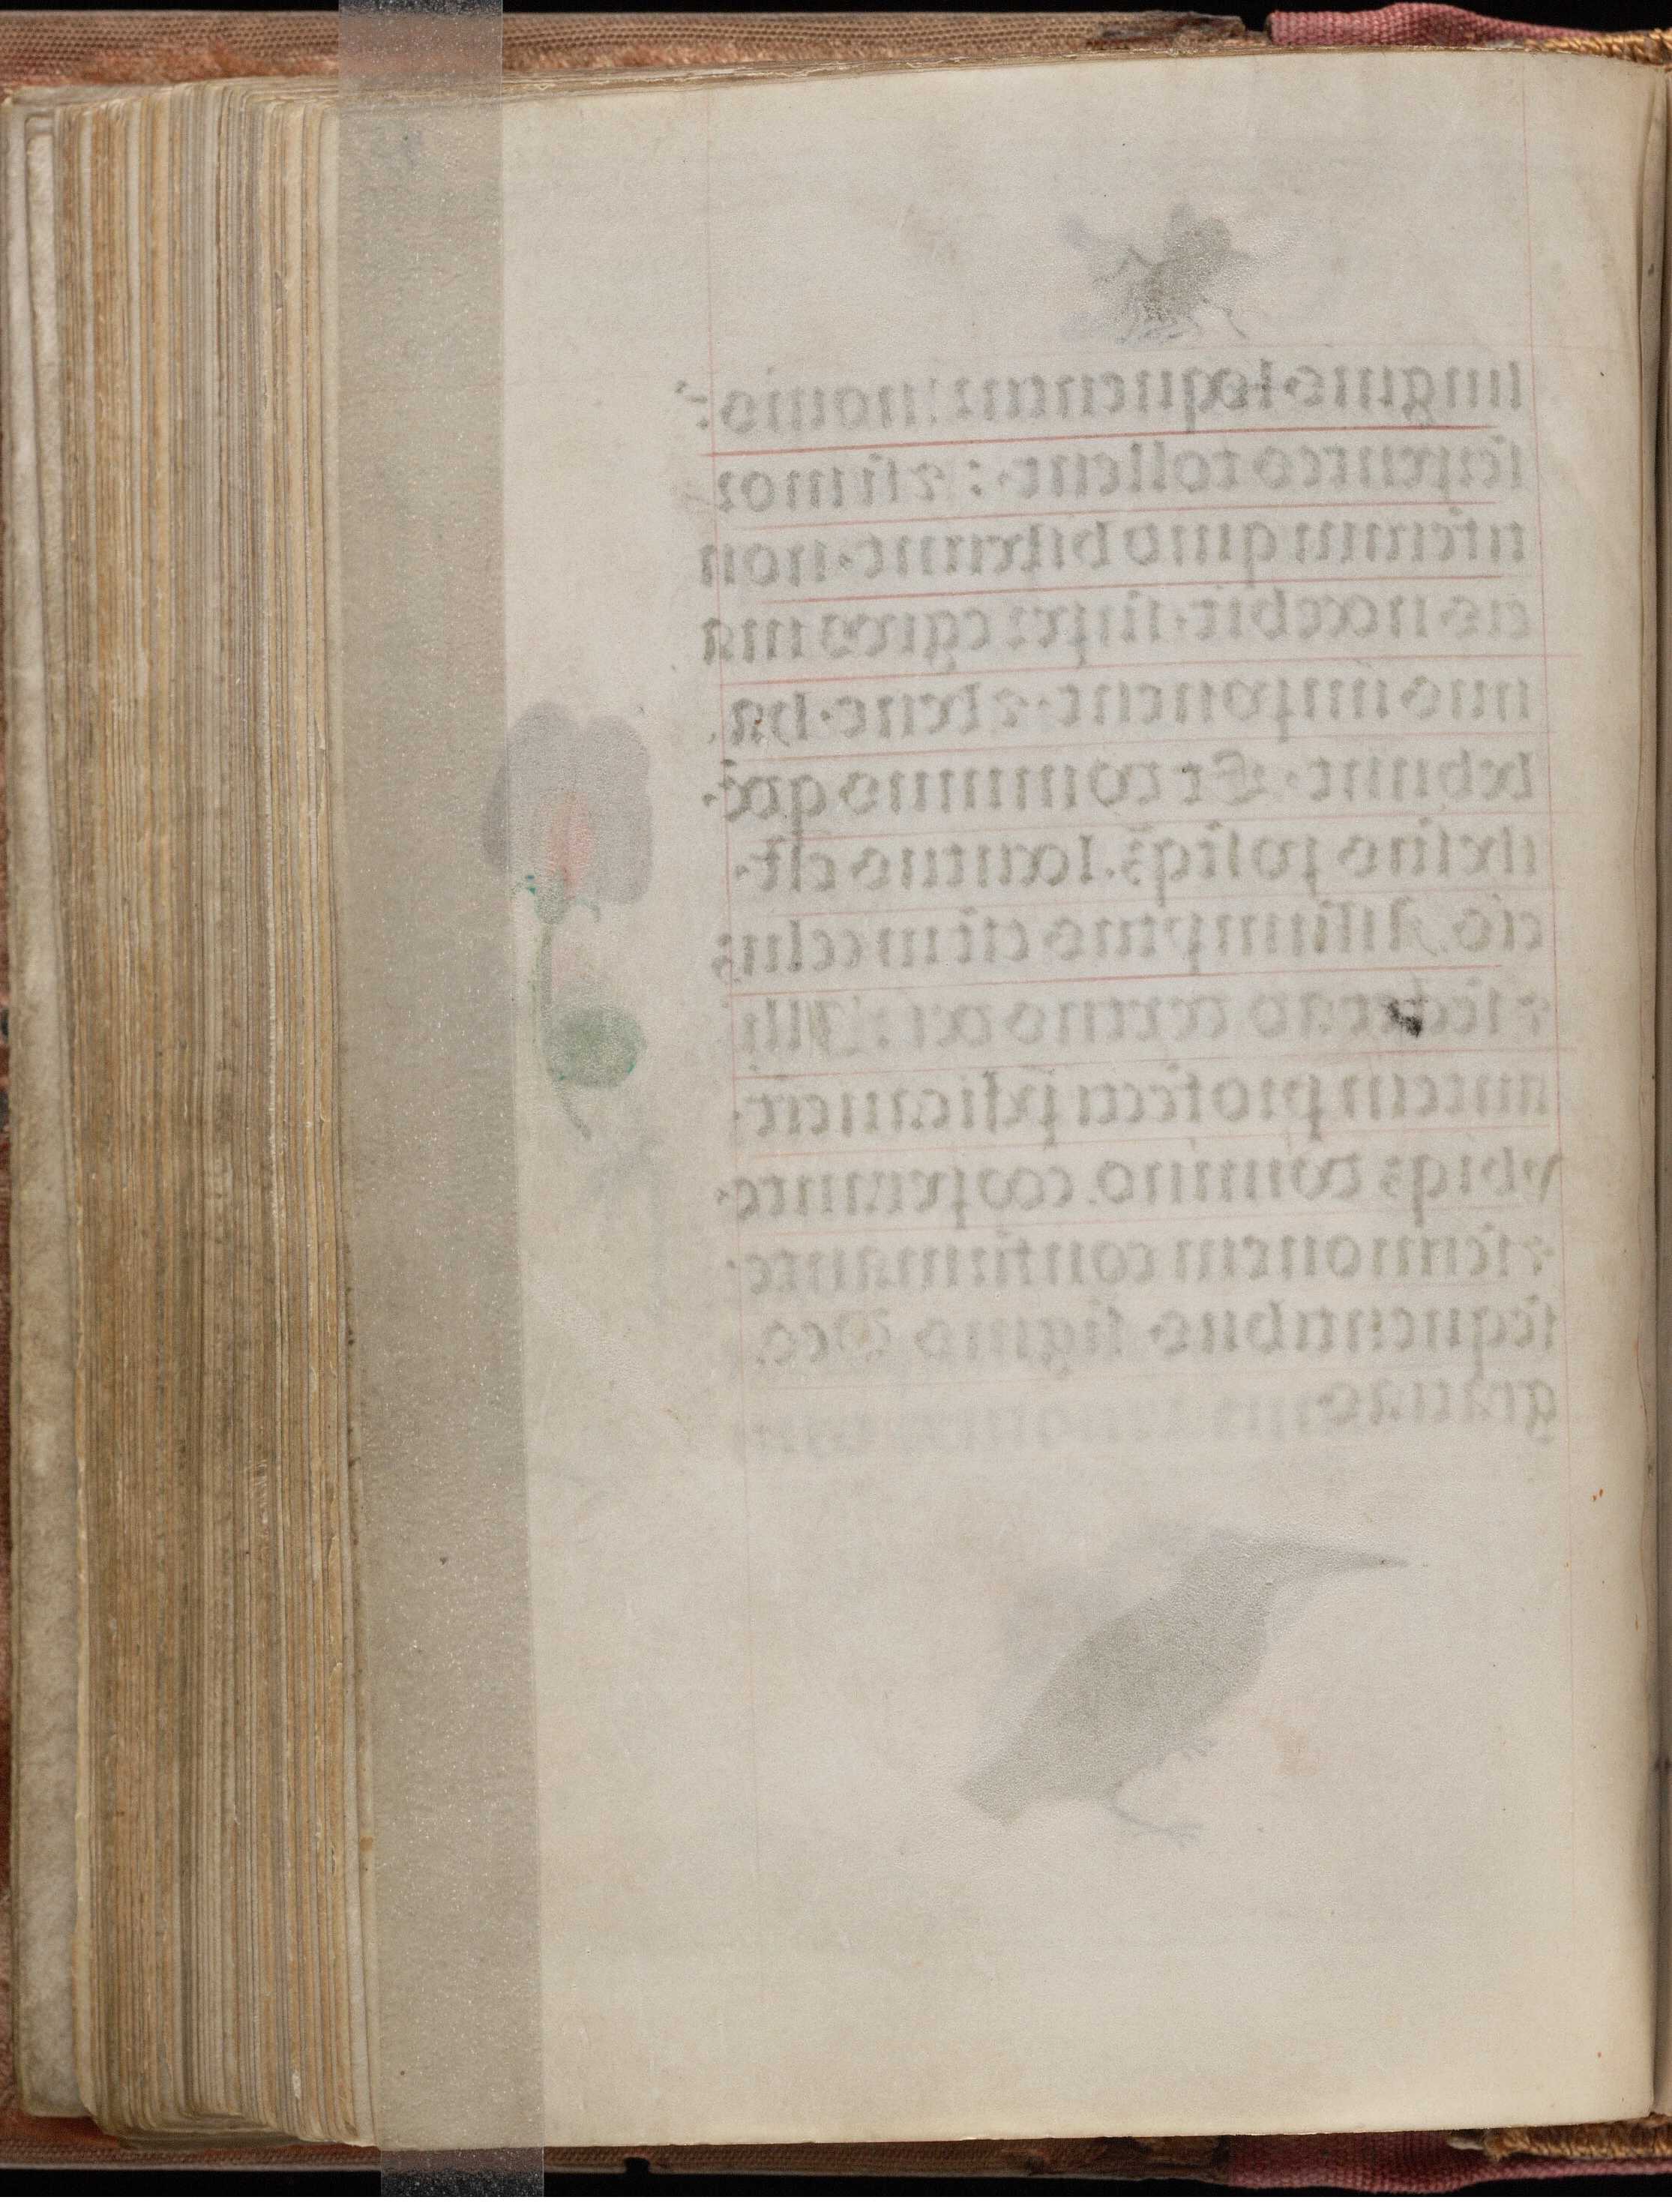 linguis loquentur nouis:
serpentes tollent: ⁊ si mor
tiferum quid biberint. non
eis nocebit. super egros ma
nus imponent. ⁊ bene ha
bebunt. Et dominus qde
ihesus postqȝ locutus est
eis. Assumptus est in celum
⁊ sedet a dextris dei: Illi
autem profecti predicauerūt
vbiqȝ domino cooperante
⁊ sermonem confirmante
sequentibus signis Deo
gracias